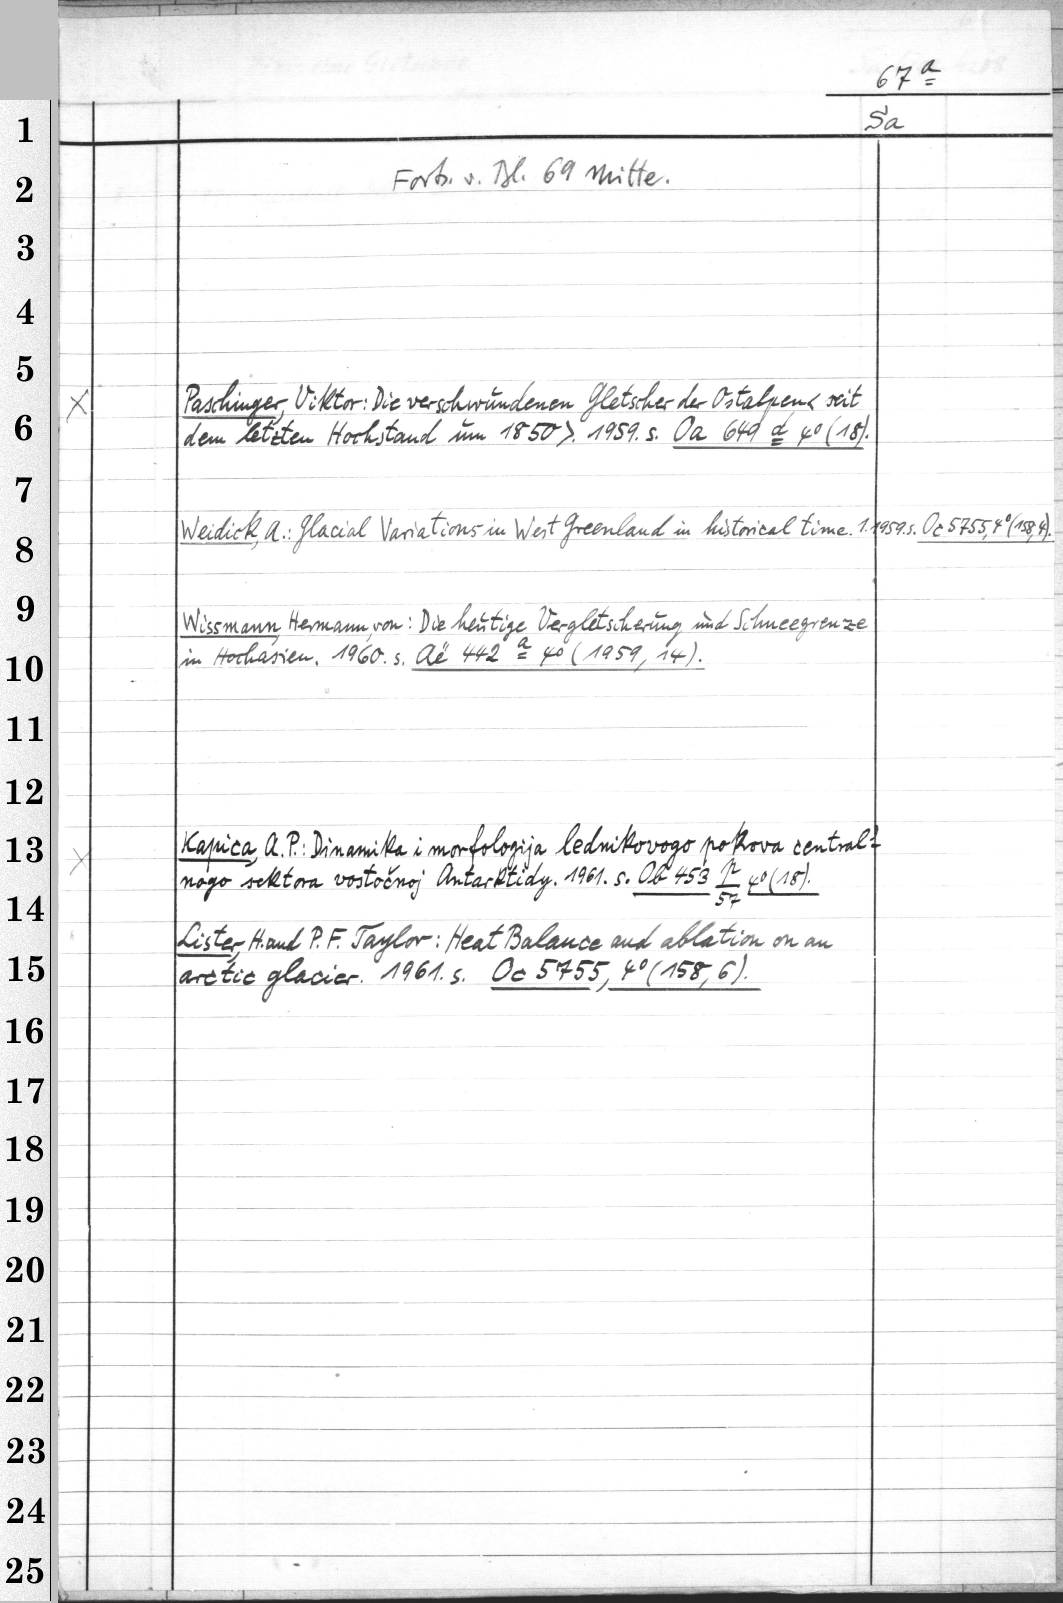 67 a
Sa
1
Forts. v. Bl. 69 Mitte.
2
3
4
5
Paschinger, Viktor: Die verschwundenen Gletscher der Ostalpen < seit
6
dem letzten Hochstand um 1850 >. 1959. s. Oa 649 d 4° (18).
7
Weidick, A.: Glacial Variations in West Greenland in historical time. 1. 1959. s. Oc 5755, 4° (158,4).
8
9
Wissmann, Hermann, von: Die heutige Vergletscherung und Schneegrenze
10
in Hochasien. 1960. s. Aë 442 a 4° (1959, 14).
11
12
13
Kapica, A. P.: Dinamika i morfologija lednikovogo pokrova central-
nogo sektora vostočnoj Antarktidy. 1961. s. Ob 453 p/57 4° (18).
14
Lister, H. and P. F. Taylor: Heat Balance and ablation on an
15
arctic glacier. 1961. s. Oc 5755, 4° (158, 6).
16
17
18
19
20
21
22
23
24
25